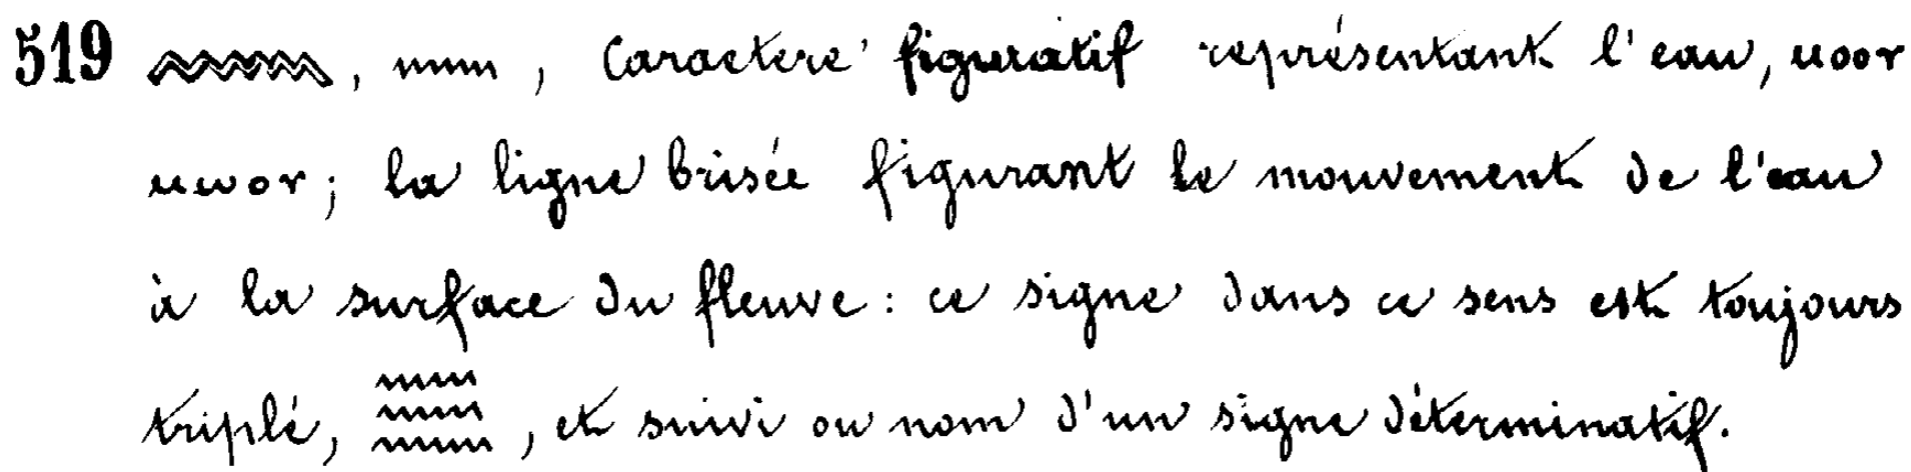 519 𓈖, 𓈖, Caractere figuratif représentant l'eau, ⲙⲟⲟⲩ
ⲙⲱⲟⲩ; la ligne brisée figurant le mouvement de l'eau
à la surface du fleuve : ce signe dans ce sens est toujours
triplé, 𓈗, et suivi ou nom d'un signe déterminatif.